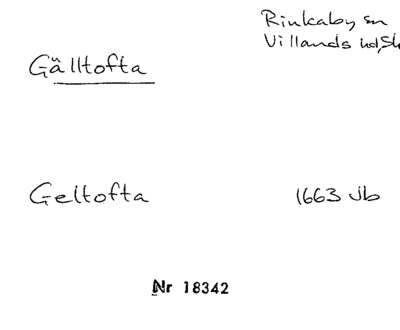 Rinkaby sn
Villands hd, Sk
Gälltofta
Geltofta 1663 Jb
Nr 18342